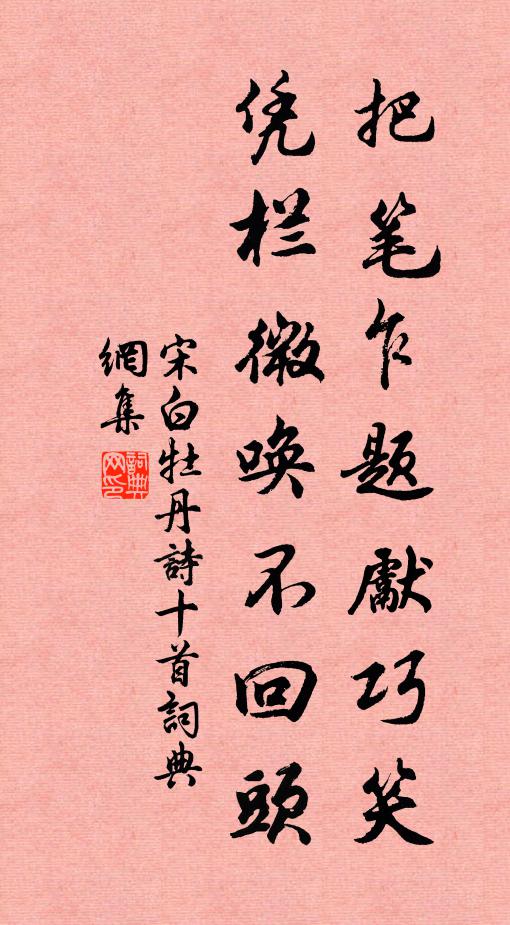 把笔乍题献巧笑
凭栏微唤不回頭
宋白牡丹詩十首詞典
網集
詞典
网印